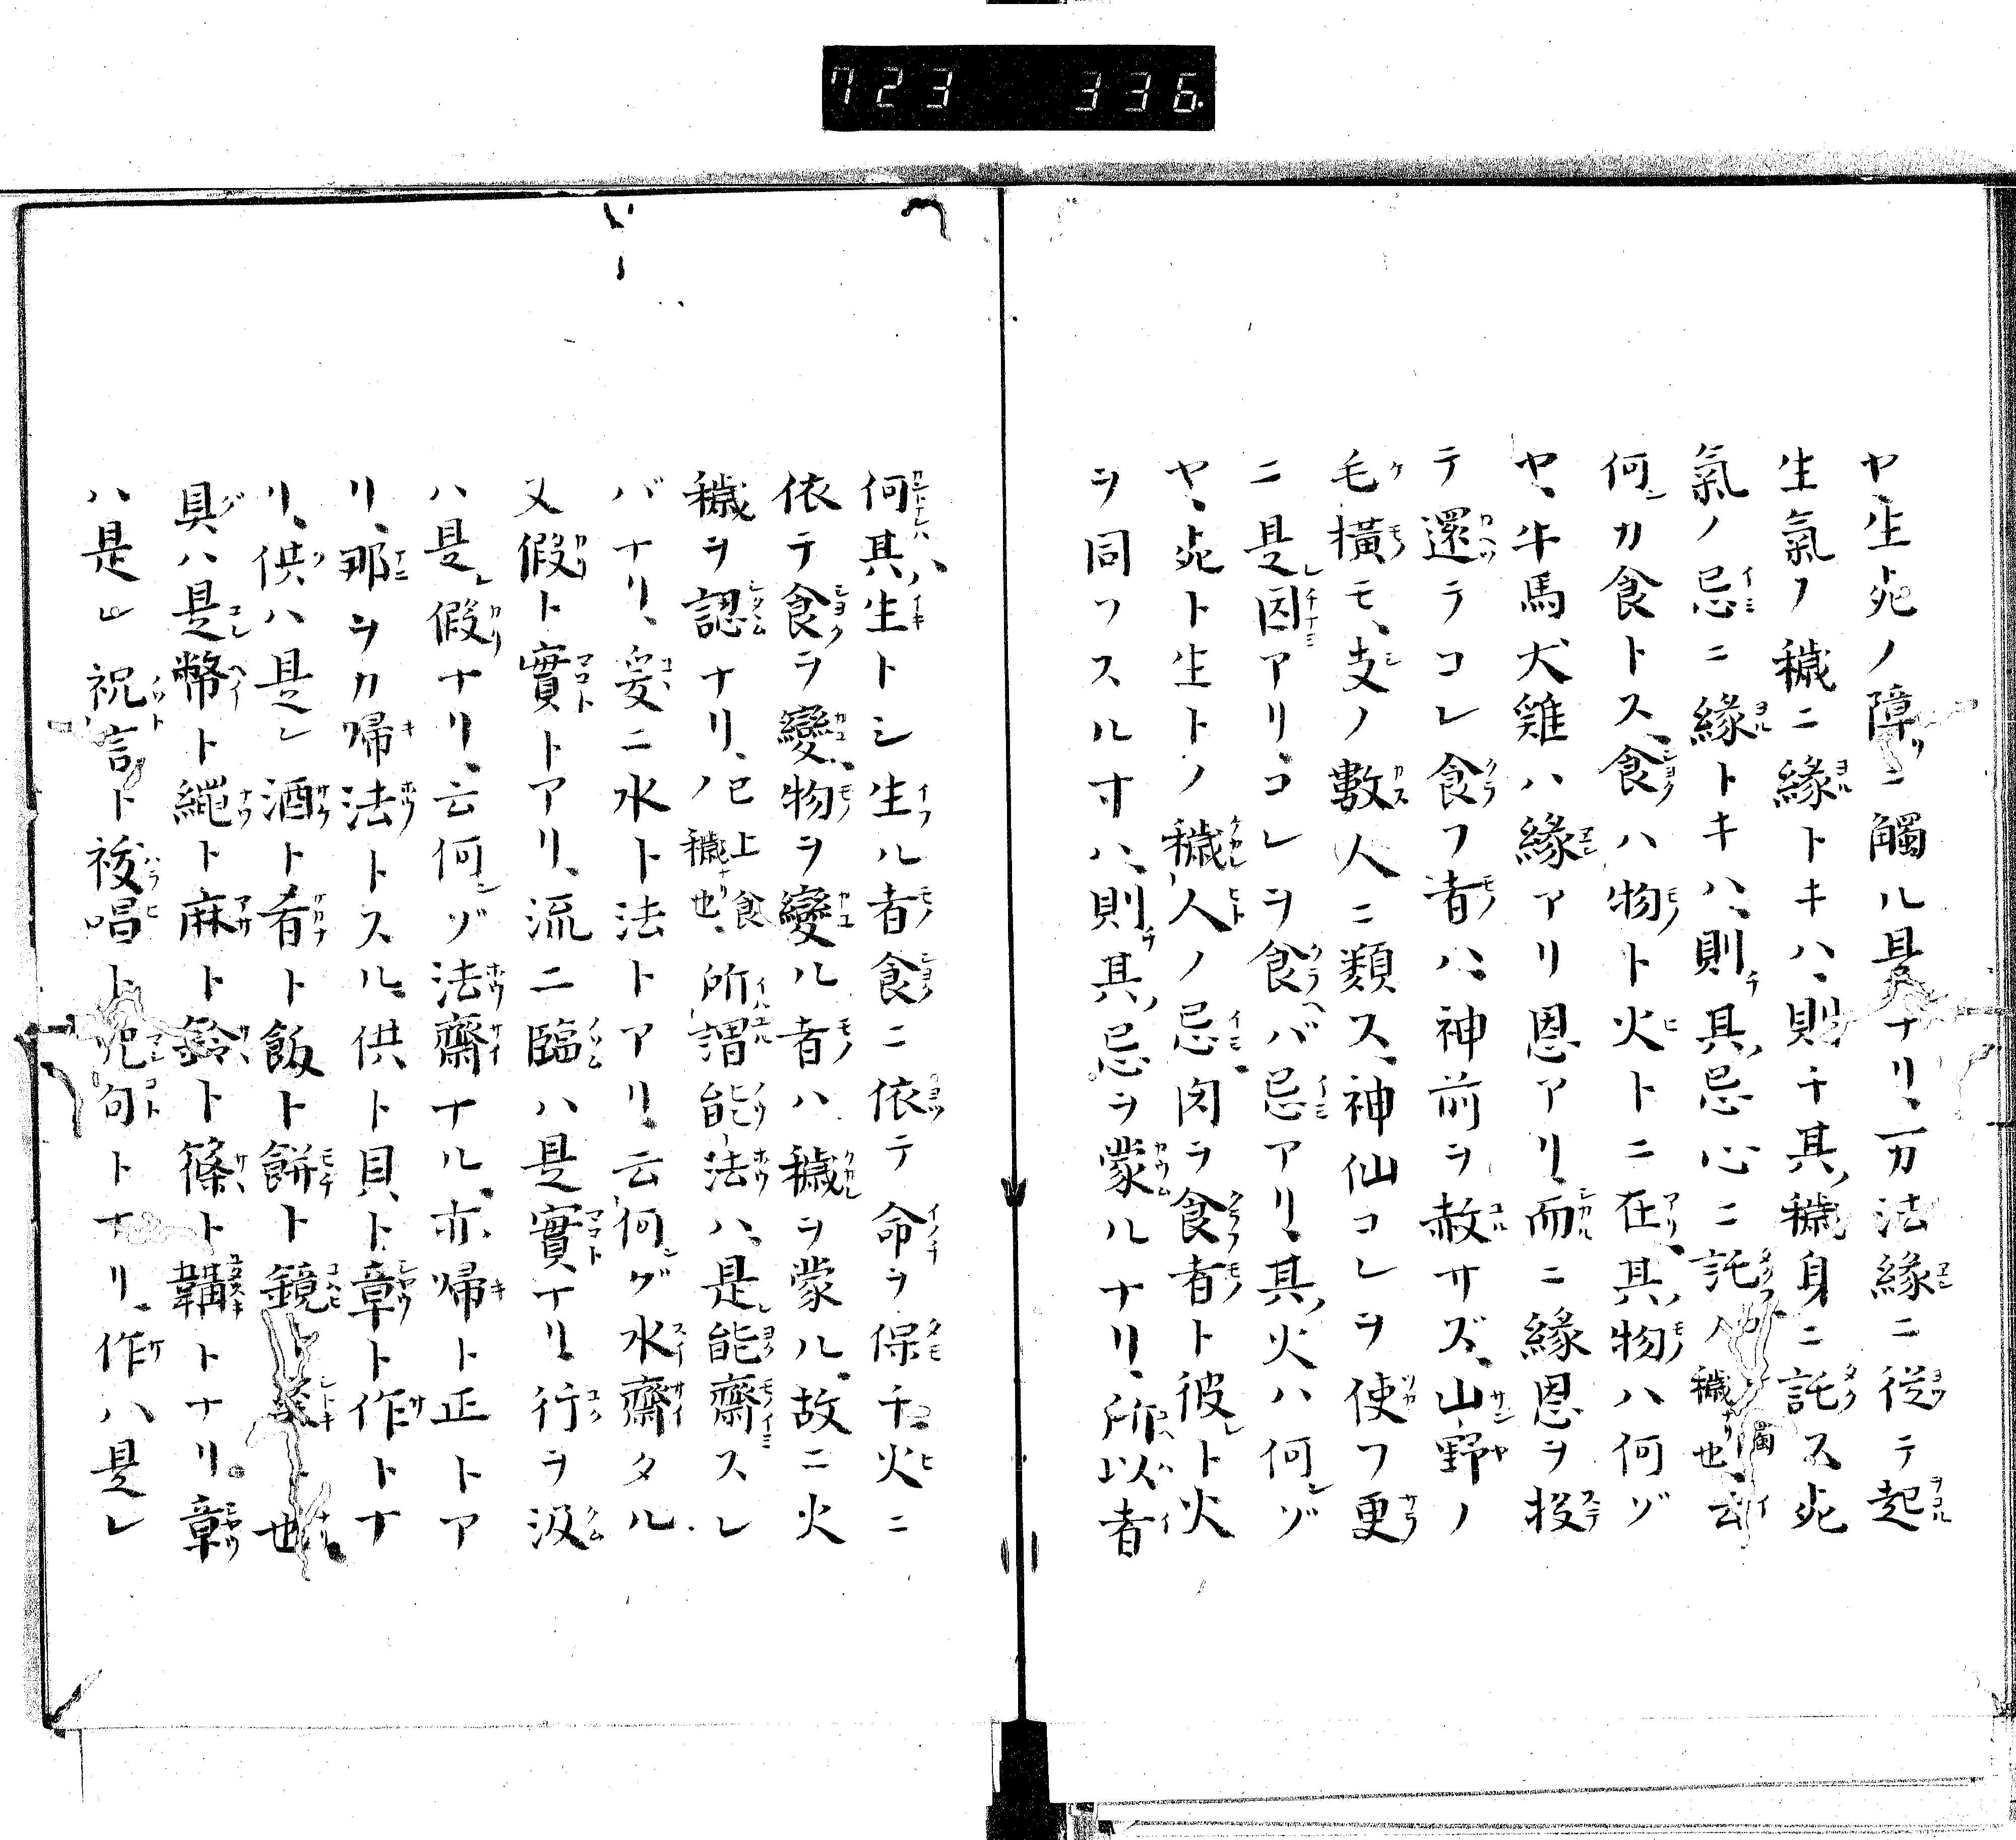 723 336
ヤ生死ノ障ニ觸ル是ナリ、一万法縁ニ従テ起
生氣ノ穢ニ緣トキハ、則チ其穢身ニ託ス死
氣ノ忌ニ緣トキハ、則其忌心ニ託ス 觸穢也、云
何カ食トス、食ハ物ト火トニ在、其物ハ何ゾ
ヤ、牛馬犬雞ハ緣アリ恩アリ、而ニ緣恩ヲ投
テ還テコレ食フ者ハ、神前ヲ赦サズ、山野ノ
毛横モ、支ノ數人ニ類ス、神仙コレヲ使フ更
ニ是因アリ、コレヲ食バ忌アリ、其火ハ何ゾ
ヤ、死ト生トノ穢人ノ忌肉ヲ食者ト彼ト火
ヲ同フスル寸ハ、則其忌ヲ蒙ルナリ、所以者
何、其生トシ生ル者食ニ依テ命ヲ保チ火ニ
依テ食ヲ變、物ヲ變ル者ハ穢ヲ蒙ル、故ニ火
穢ヲ認ナリ、已上食穢也、所謂能法ハ、是能齋スレ
バナリ、爰ニ水ト法トアリ、云何ゲ水齋タル
又假ト實トアリ、流ニ臨ハ是實ナリ、行ヲ汲
ハ是假ナリ、云何ゾ法齋ナル、亦帰ト正トア
リ、那ヲカ帰法トスル、供ト具ト章ト作トナ
リ、供ハ是レ酒ト肴ト飯ト餅ト鏡ト 也、
具ハ是幣ト繩ト麻ト鈴ト篠ト韛トナリ。章
ハ是レ祝言ト祓唱ト咒句トナリ、作ハ是レ